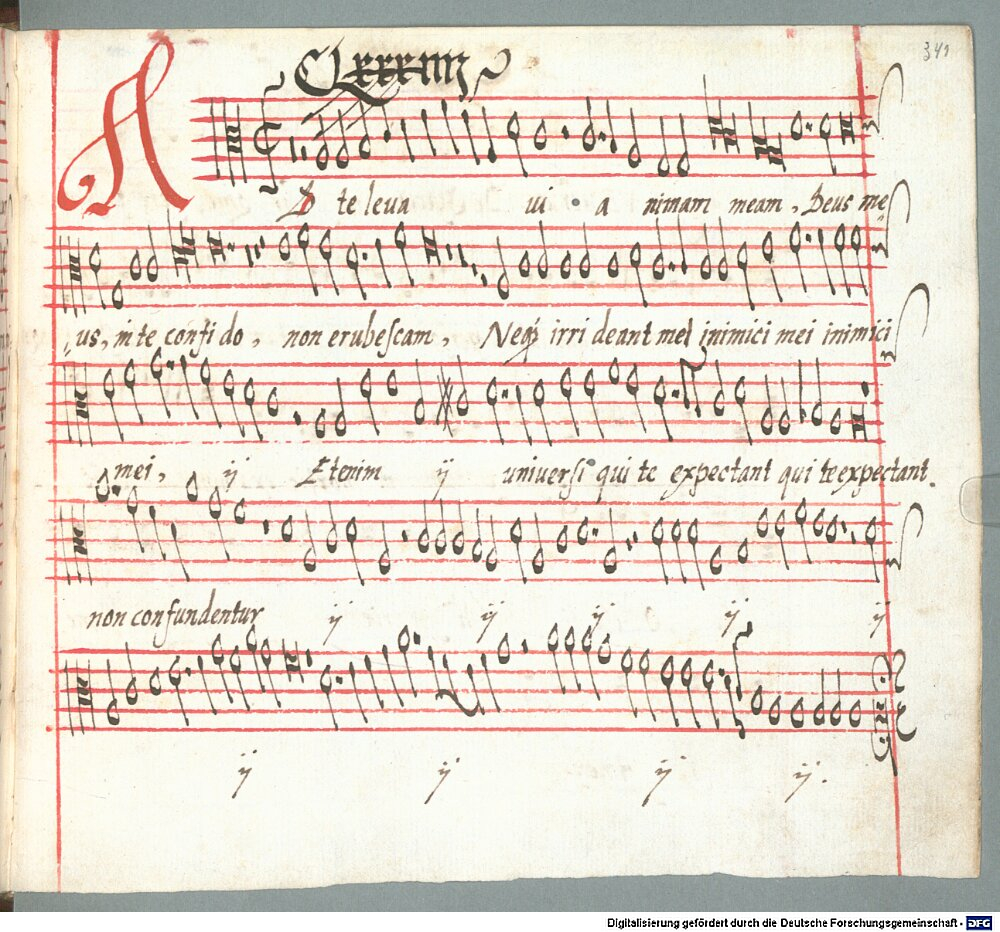 341
A
D te leva ui a nimam meam, Deus me
us, in te confido, non erubescam, Neq; irrideant me inimici mei inimici
mei, ij Etenim ij universi qui te expectant qui te expectant.
non confundentur ij ij ij ij ij
ij ij ij ij.
Digitalisierung gefördert durch die Deutsche Forschungsgemeinschaft - DFG